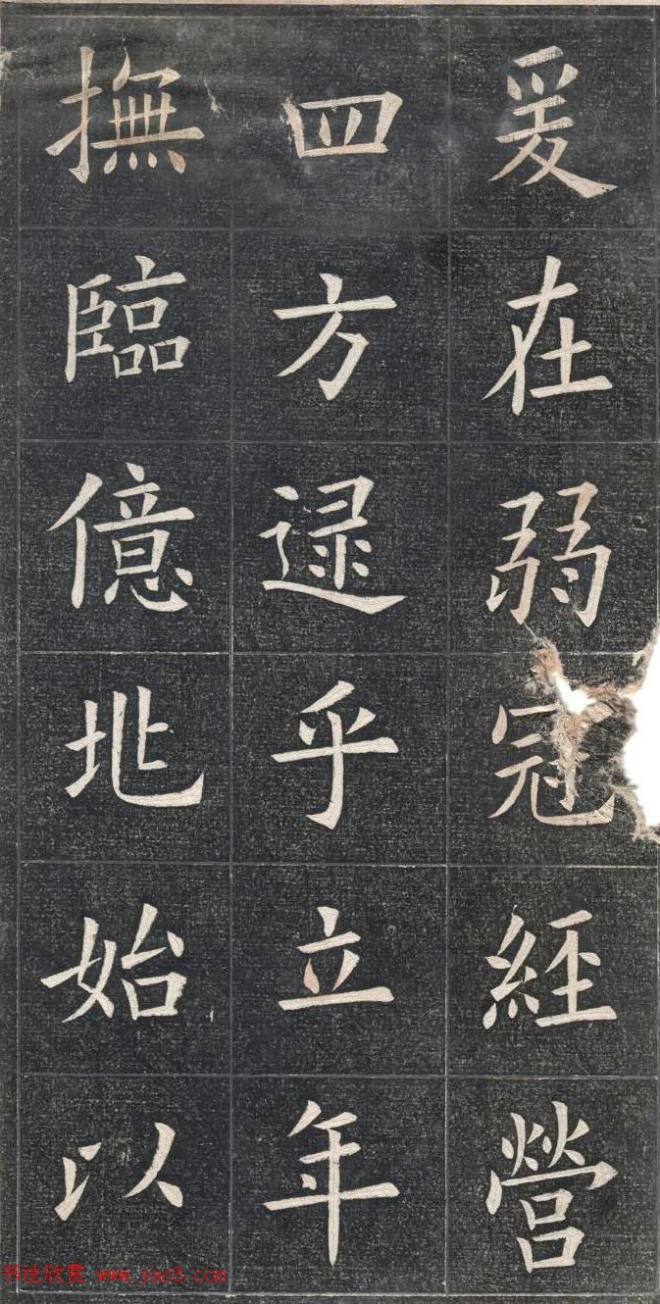 爰在弱冠經營
四方逯乎立年
撫臨億兆始以
书法欣赏 www.yac5.com